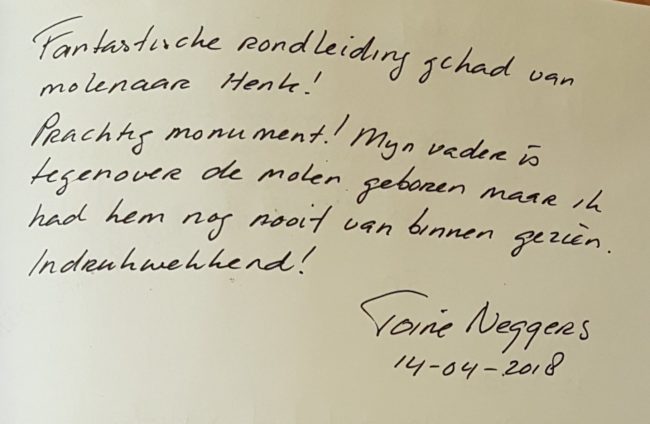 Fantastische rondleiding gehad van
molenaar Henk!
Prachtig monument! Mijn vader is
tegenover de molen geboren maar ik
had hem nog nooit van binnen gezien.
Indrukwekkend!
Toine Neggers
14-04-2018